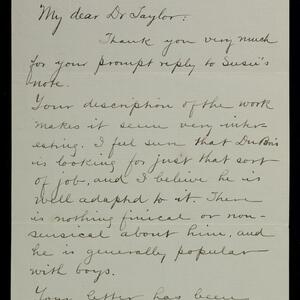 My dear Dr Taylor:
Thank you very much
for your prompt reply to Susie's
note.
Your description of the work
makes it seem very inter-
esting. I feel sure that DuBois
is looking for just that sort
of job, and I believe he is
well adapted to it. There
is nothing finical or non-
sensical about him, and
he is generally popular
with boys.
Your letter has been